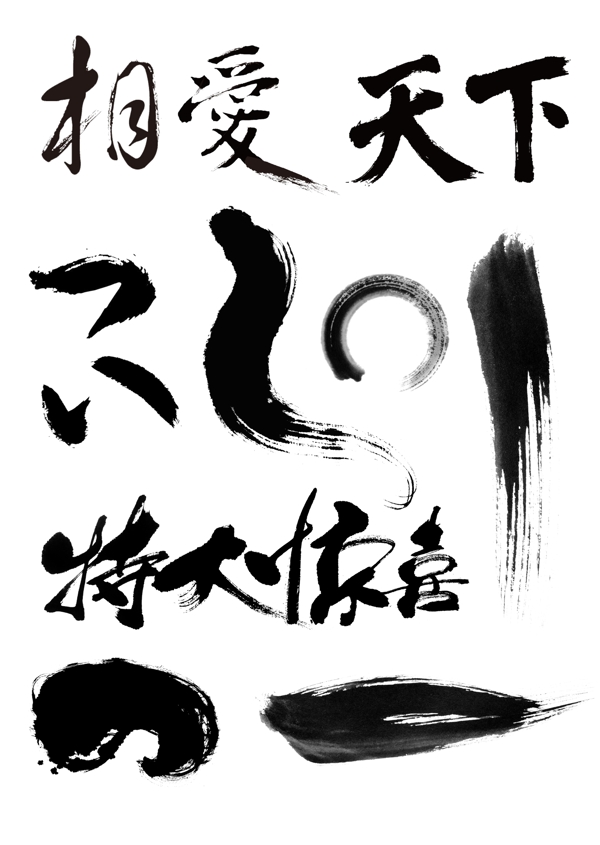 相愛 天下
特大惊喜